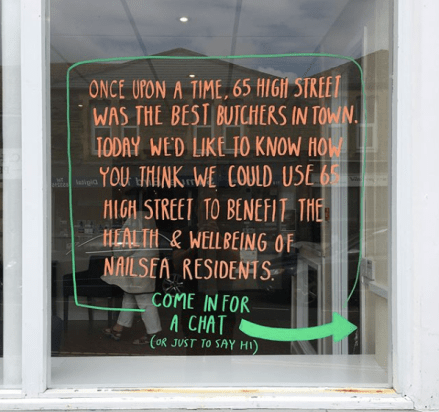 ONCE UPON A TIME, 65 HIGH STREET
WAS THE BEST BUTCHERS IN TOWN.
TODAY WE'D LIKE TO KNOW HOW
YOU THINK WE COULD USE 65
HIGH STREET TO BENEFIT THE
HEALTH & WELLBEING OF
NAILSEA RESIDENTS.
COME IN FOR
A CHAT
(OR JUST TO SAY HI)